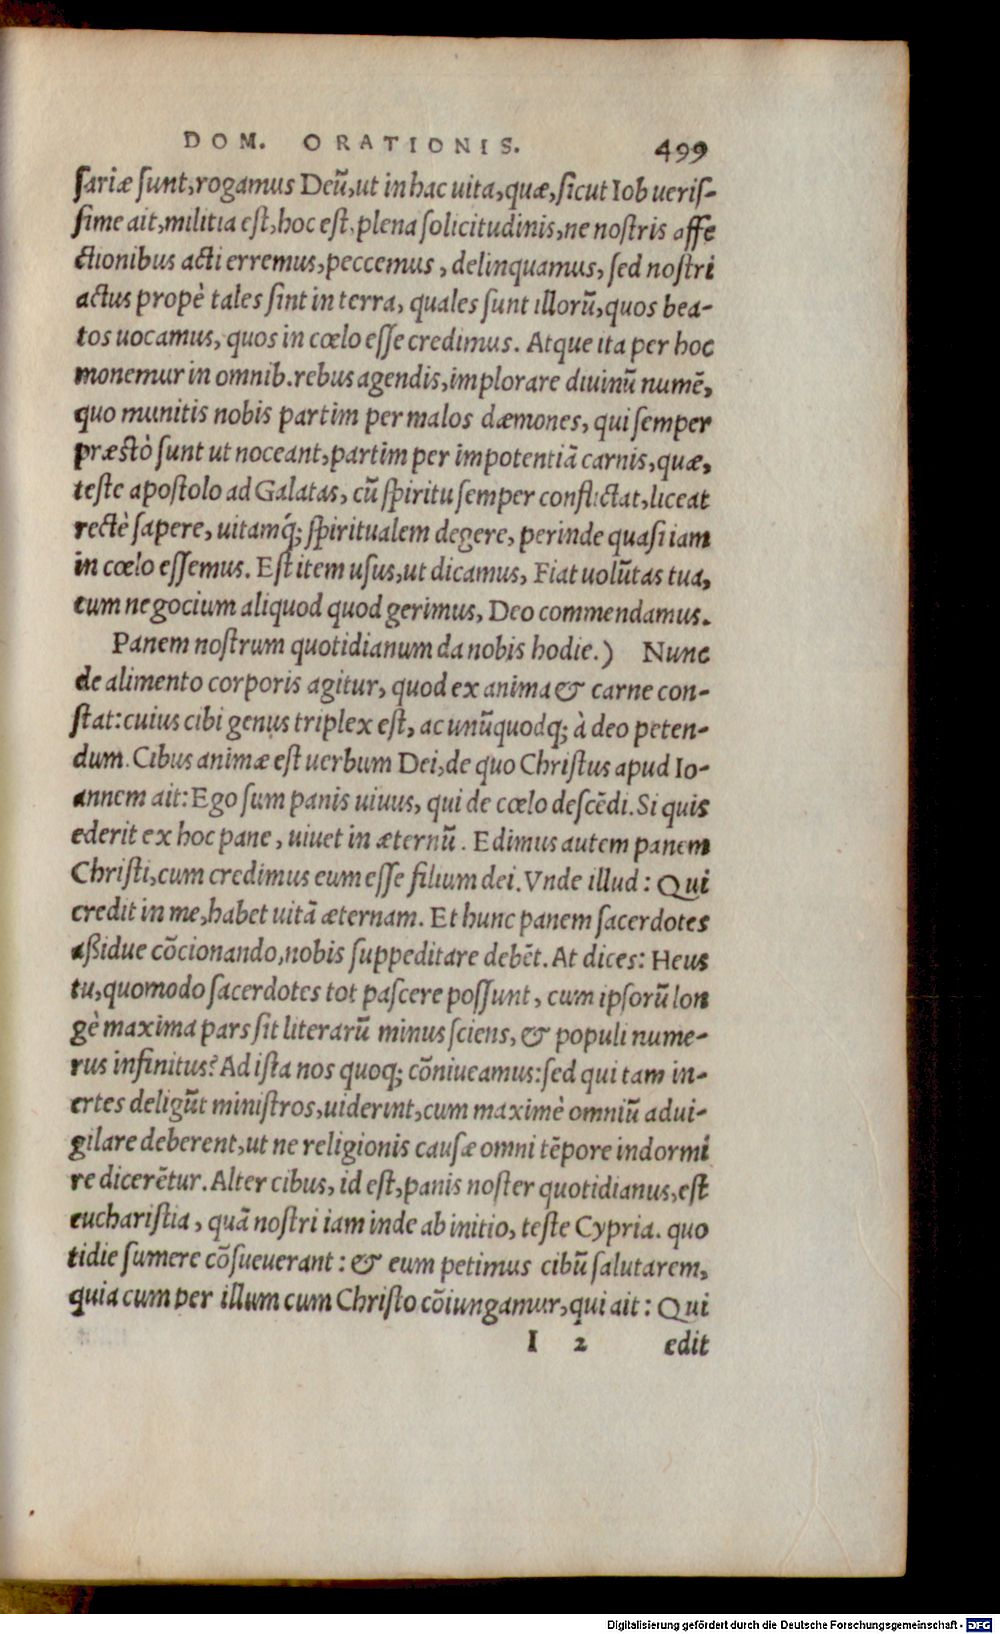 DOM. ORATIONIS. 499
sariæ sunt, rogamus Deũ, ut in hac uita, quæ, sicut Iob ueris-
sime ait, militia est, hoc est, plena solicitudinis, ne nostris affe
ctionibus acti erremus, peccemus, delinquamus, sed nostri
actus propè tales sint in terra, quales sunt illorũ, quos bea-
tos uocamus, quos in cœlo esse credimus. Atque ita per hoc
monemur in omnib. rebus agendis, implorare diuinũ numẽ,
quo munitis nobis partim per malos dæmones, qui semper
præstò sunt ut noceant, partim per impotentiã carnis, quæ,
teste apostolo ad Galatas, cũ spiritu semper conflictat, liceat
rectè sapere, uitamq́; spiritualem degere, perinde quasi iam
in cœlo essemus. Est item usus, ut dicamus, Fiat uolũtas tua,
cum negocium aliquod quod gerimus, Deo commendamus.
Panem nostrum quotidianum da nobis hodie.) Nunc
de alimento corporis agitur, quod ex anima & carne con-
stat: cuius cibi genus triplex est, ac unũquodq; à deo peten-
dum. Cibus animæ est uerbum Dei, de quo Christus apud Io-
annem ait: Ego sum panis uiuus, qui de cœlo descẽdi. Si quis
ederit ex hoc pane, uiuet in æternũ. Edimus autem panem
Christi, cum credimus eum esse filium dei. Vnde illud: Qui
credit in me, habet uitã æternam. Et hunc panem sacerdotes
aßidue cõcionando, nobis suppeditare debẽt. At dices: Heus
tu, quomodo sacerdotes tot pascere possunt, cum ipsorũ lon
gè maxima pars sit literarũ minus sciens, & populi nume-
rus infinitus? Ad ista nos quoq; cõniueamus: sed qui tam in-
ertes deligũt ministros, uiderint, cum maximè omniũ adui-
gilare deberent, ut ne religionis causæ omni tẽpore indormi
re dicerẽtur. Alter cibus, id est, panis noster quotidianus, est
eucharistia, quã nostri iam inde ab initio, teste Cypria. quo
tidie sumere cõsueuerant: & eum petimus cibũ salutarem,
quia cum per illum cum Christo cõiungamur, qui ait: Qui
I 2 edit
Digitalisierung gefördert durch die Deutsche Forschungsgemeinschaft - DFG